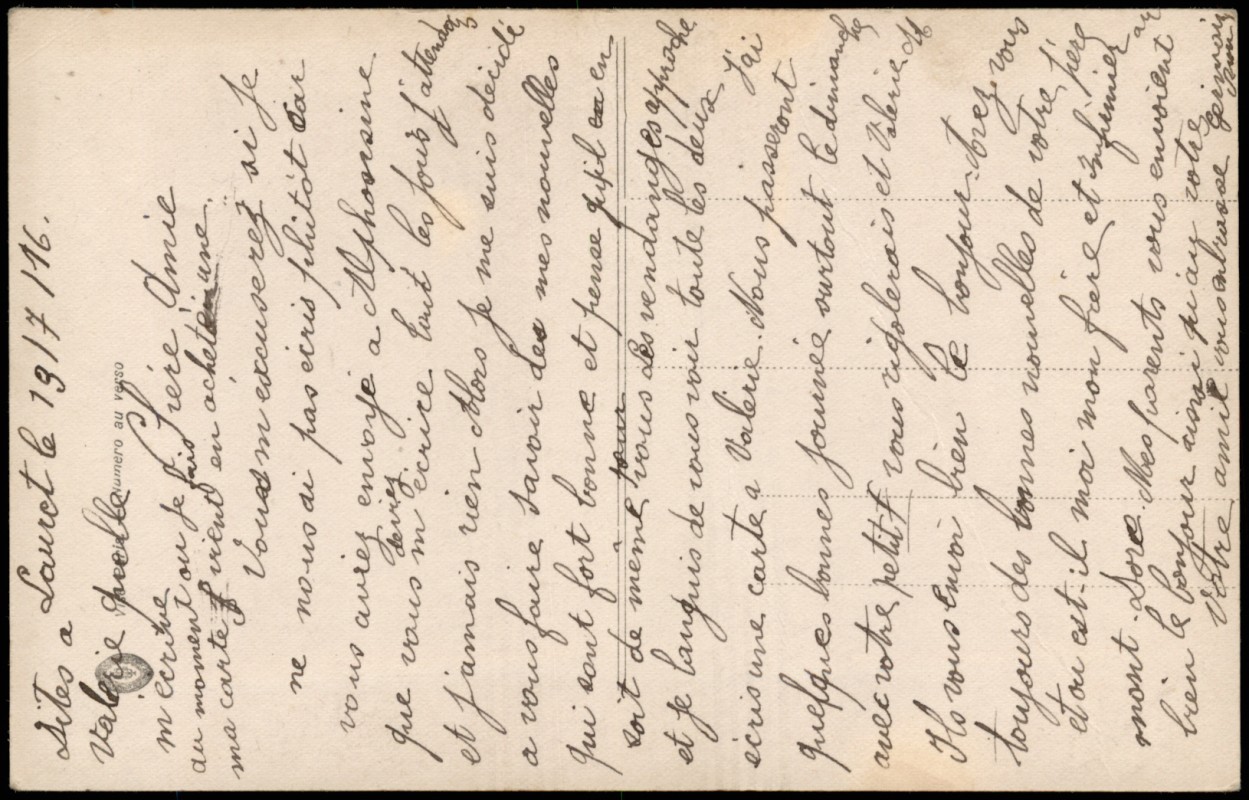 Lauret le 19/7/16.
Dites a
Valerie quelle
m ecrive
au moment ou je fais
ma carte il vient en acheté une.
Numéro au verso
Chère Amie
Vous m excuserez si je
ne vous ai pas ecris plutôt car
vous aviez envoyé a Alphonsine
que vous deviez m ecrire tout les jours j'attendais
et jamais rien Alors je me suis décidé
a vous faire savoir des mes nouvelles
qui sont fort bonne et pense qu'il en
soit de meme pour vous Les vendanges approche
et je languis de vous voir toute les deux J'ai
ecris une carte a Valerie. Nous passeront
quelques bonnes journée surtout le dimanche
avec votre petit f vous rigolerais et Valerie
Ils vous envoi bien le bonjour. Avez vous
toujours des bonnes nouvelles de votre frère
et ou est-il moi mon frère et infirmier au
mont-Dore. Mes parents vous envoient
bien le bonjour ainsi qu au votre
Votre amie vous embrasse